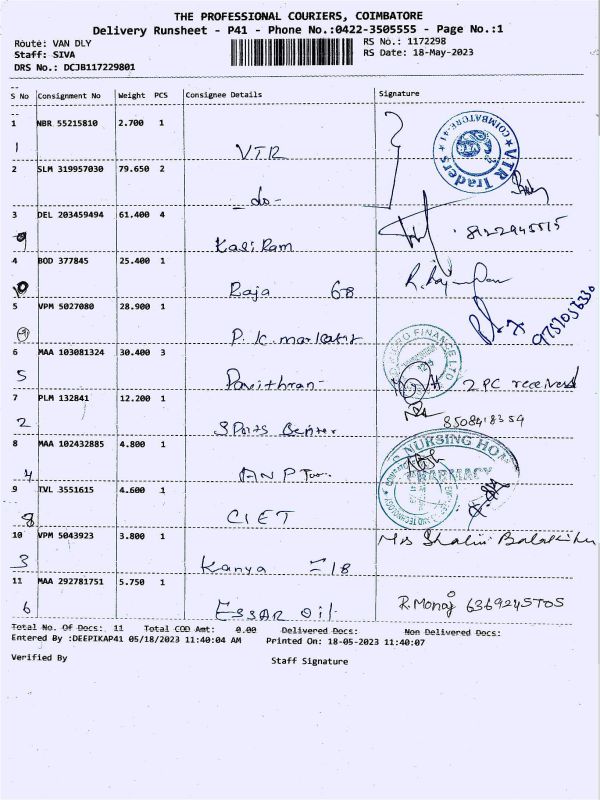 THE PROFESSIONAL COURIERS, COIMBATORE
Delivery Runsheet - P41 - Phone No.:0422-3505555 - Page No.:1
Route: VAN DLY
RS No.: 1172298
Staff: SIVA
RS Date: 18-May-2023
DRS No.: DCJB117229801
S No Consignment No Weight PCS Consignee Details Signature
1 NBR 55215810 2.700 1
1 VTR
COIMBATORE-41 ★ VTR Traders ★
2 SLM 319957030 79.650 2
- do -
3 DEL 203459494 61.400 4
9 Kasi Ram
4 BOD 377845 25.400 1
10 Raja 68
5 VPM 5027080 28.900 1
9757056330
P. K. marketig
6 MAA 103081324 30.400 3
FINANCE LTD
5 Pavithran - 2 PC received
7 PLM 132841 12.200 1
8508418359
2 Sports Center
8 MAA 102432885 4.800 1
NURSING HOME
PHARMACY
4 ANP
9 TVL 3551615 4.600 1
8 CIET
10 VPM 5043923 3.800 1
Mrs Shalini
3 Kanya = 18
11 MAA 292781751 5.750 1
6 ESSAR Oil R. Monoj 6369245705
Total No. Of Docs: 11 Total COD Amt: 0.00 Delivered Docs: Non Delivered Docs:
Entered By :DEEPIKAP41 05/18/2023 11:40:04 AM Printed On: 18-05-2023 11:40:07
Verified By
Staff Signature